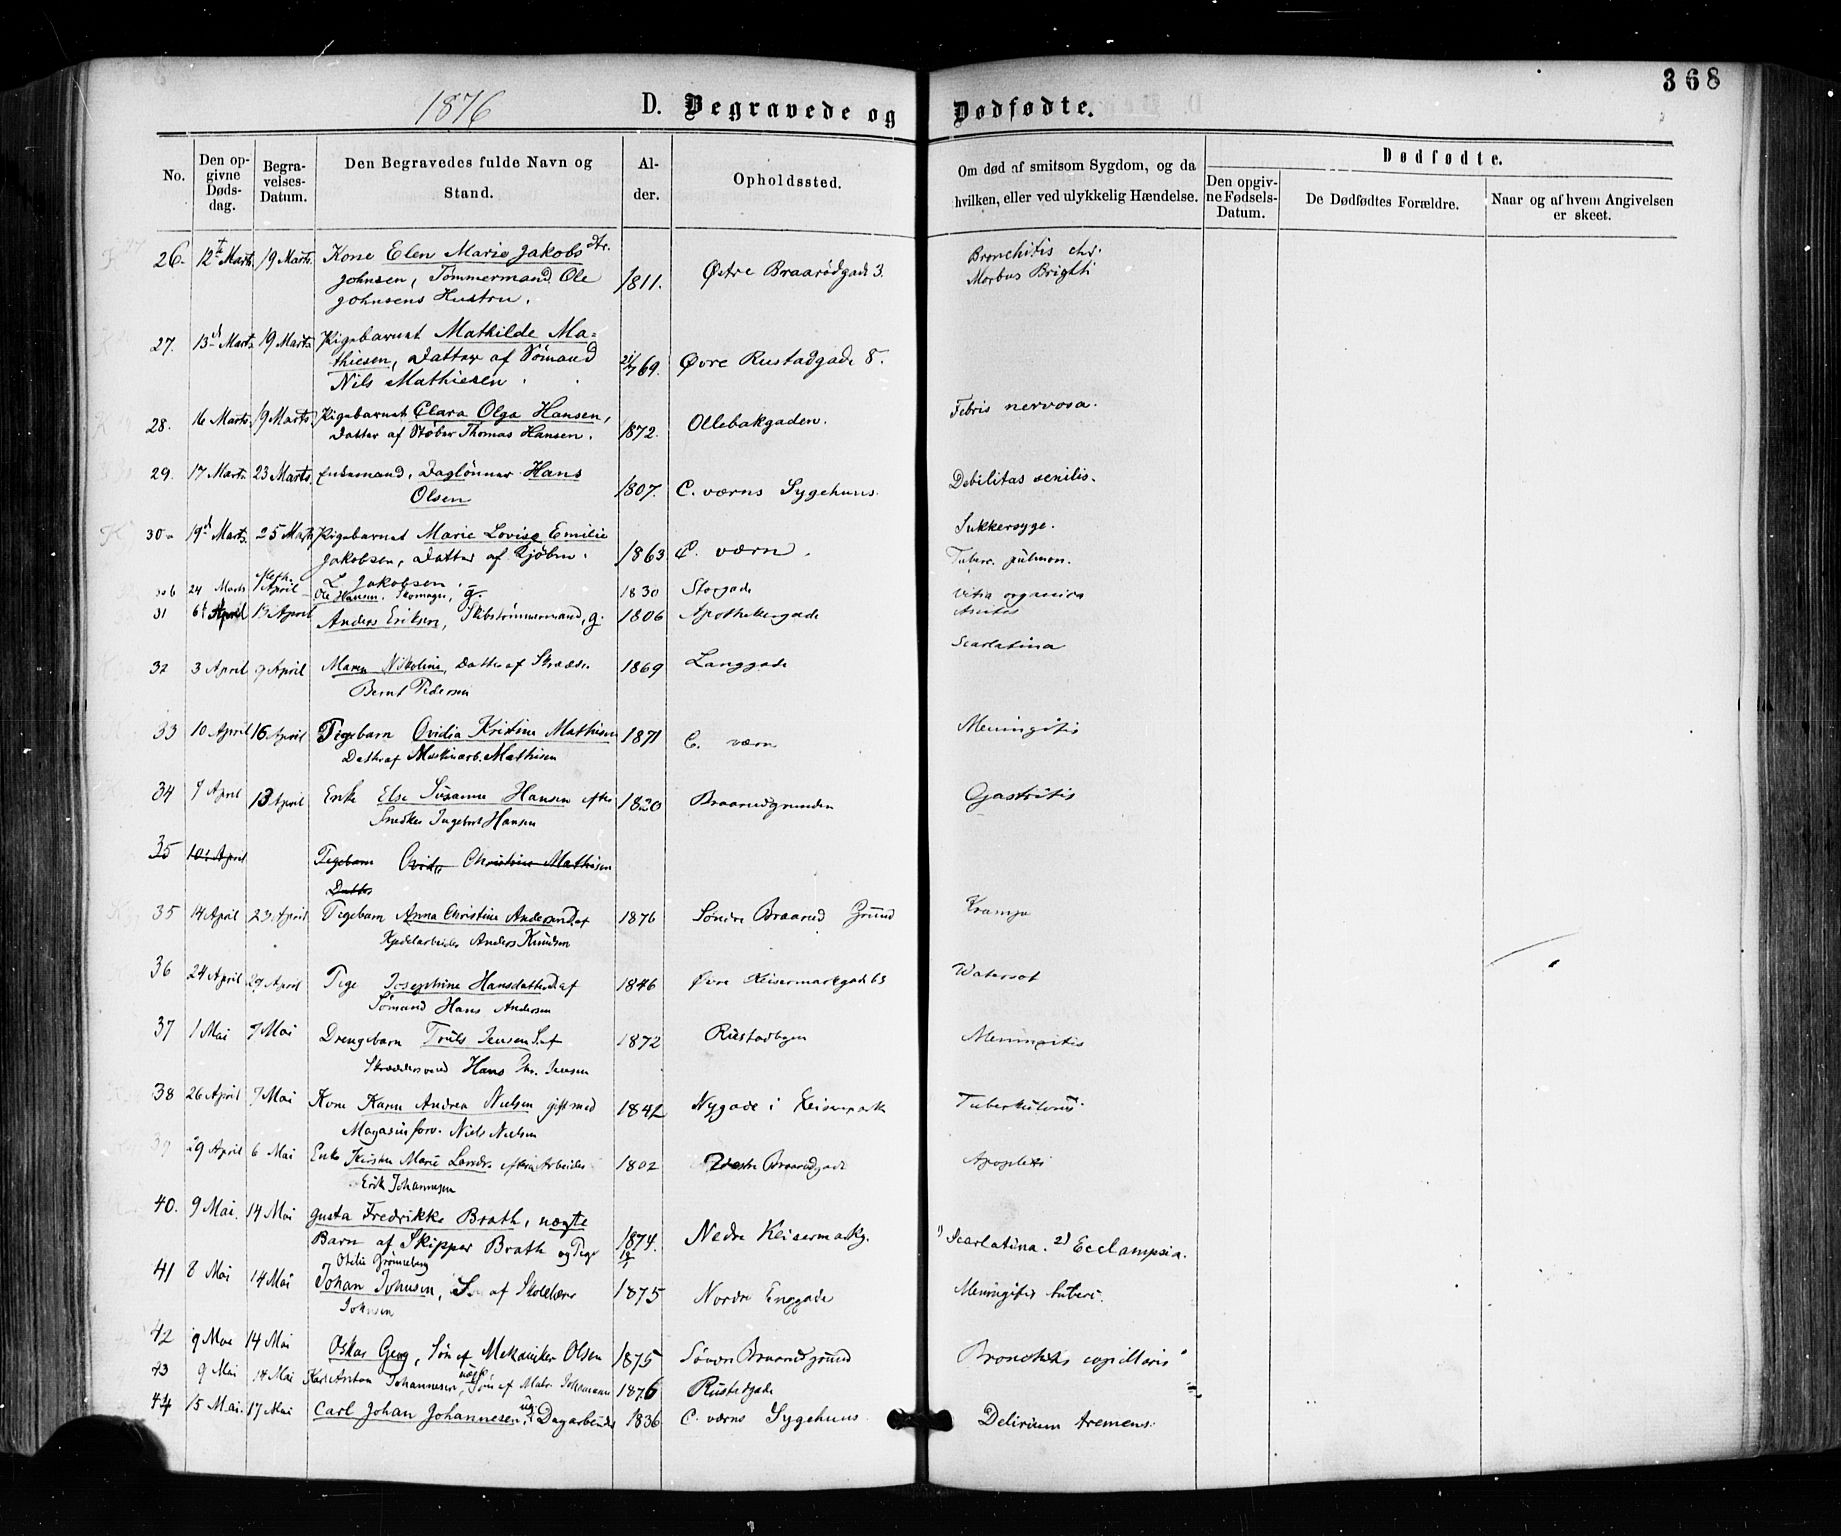 368
1876 D. Begravede og Dødfødte.
No.
Den opgivne Dødsdag.
Begravelses-Datum.
Den Begravedes fulde Navn og Stand.
Alder.
Opholdssted.
Om død af smitsom Sygdom, og da hvilken, eller ved ulykkelig Hændelse.
Dødfødte.
Den opgivne Fødsels-Datum.
De Dødfødtes Forældre.
Naar og af hvem Angivelsen er skeet.
26. 12te Marts. 19 Marts. Kone Elen Marie Jakobsdtr. Bronchitis chr.
Johnsen, Tømmermand Ole 1811. Østre Braarødgade 3. Morbus Brigtti
Johnsens Hustru.
27. 13d Marts 19 Marts. Pigebarnet Mathilde Ma-
thiesen, Datter af Sømand 21/7 69. Øvre Rustadgade 8.
Nils Mathiesen.
28. 16 Marts. 19 Marts. Pigebarnet Clara Olga Hansen, Febris nervosa.
Datter af Støber Thomas Hansen. 1872. Ollebakgaden.
29. 17 Marts 23 Marts. Enkemand, Daglønner Hans Debilitas senilis.
Olsen 1807. C. værns Sygehuus.
30a 19d Marts. 25 Marts Pigebarnet Marie Lovise Emilie Sukkersyge.
Jakobsen, Datter af Kjøbm. 1863 C. værn. Tuberc. pulmon.
L. Jakobsen.
30b 24 Marts 1 April Ole Hansen, Skomager, g. 1830 Storgade Vitia organica
31 6t April 13 April Anders Eriksen, Skibstømmermand, g. 1806 Apothekergade
32 3 April 9 April Maren Nikoline, Datter af Skrædder 1869 Langgade Scarlatina
Bernt Pedersen
33 10 April 16 April Pigebarn Ovidia Kristine Mathisen 1871 C. værn Meningitis
Datter af Maskinarb. Mathisen
34 7 April 13 April Enke Else Susanne Hansen efter 1820 Braarudgrunden Gastritis
Snedker Ingebret Hansen
35 10 April Pigebarn Ovida Christine Mathisen
Datter
35 14 April 23 April Pigebarn Anna Christine Andersen D. af 1876 Søndre Braarud Grund Krampe
Kjedelarbeider Anders Knudsen
36 24 April 29 April Pige Josephine Hansdatter D af 1846 Øvre Keisermarkgade 63 Watersot
Sømand Hans Andersen
37 1 Mai 7 Mai Drengebarn Truls Jensen S. af 1872 Rustadbyen Meningitis
Skræddersvend Hans Chr. Jensen
38 26 April 7 Mai Kone Karen Andrea Nielsen gift med 1842 Nygade i Keisermark Tuberkulosis
Magasinforv. Niels Nielsen
39 29 April 6 Mai Enke Kirsten Marie Larsdr efter Arbeider 1802 Vestre Braarudgade Apoplexi
Erik Johannesen
40. 9 Mai. 14 Mai Gusta Fredrikke Brath, uægte
Barn af Skipper Brath og Pige 1874. Nedre Keisermarkg. 1) Scarlatina. 2) Ecclampsia.
Otilie Grønneberg
41 8 Mai 14 Mai Johan Johnsen, S. af Skolelærer 1875 Nordre Enggade Meningitis tuberc.
Johnsen
42 9 Mai 14 Mai Oskar Georg, Søn af Mekaniker Olsen 1875 Søndre Braarudgrund Bronchitis capillaris
43 9 Mai 14 Mai Karl Anton Johannesen, uægte Søn af Matr. Johannesen 1876 Rustadgade
44 15 Mai. 17 Mai Carl Johan Johannesen, ug. Dagarbeider 1836 C. værns Sygehuus Delirium tremens.